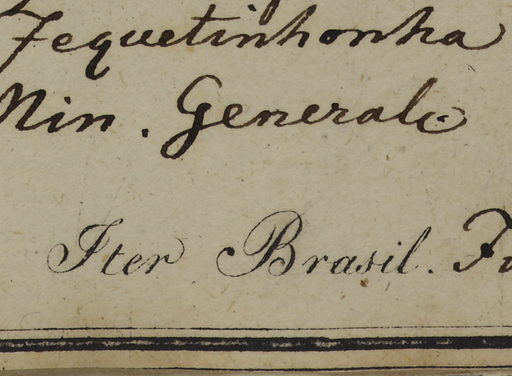 Jequetinhonha
Min. Generale
Iter Brasil.